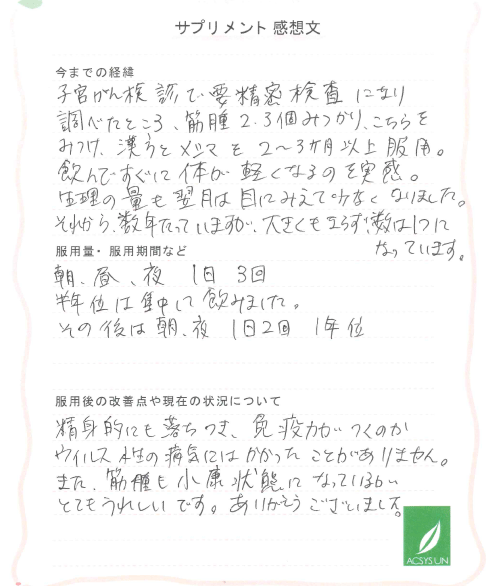 サプリメント 感想文
今までの経緯
子宮がん検診で要精密検査になり
調べたところ、筋腫2.3個みつかり、こちらを
みつけ、漢方とメシマを2〜3か月以上服用。
飲んですぐに体が軽くなるのを実感。
生理の量も翌月は目にみえて少なくなりました。
それから、数年たっていますが、大きくもならず、数は1つに
なっています。
服用量・服用期間など
朝、昼、夜 1日 3回
半年位は集中して飲みました。
その後は朝、夜 1日2回 1年位
服用後の改善点や現在の状況について
精身的にも落ちつき、免疫力がつくのか
ウイルス性の病気にはかかったことがありません。
また、筋腫も小康状態になっているので
とてもうれしいです。ありがとうございました。
ACSYSUN